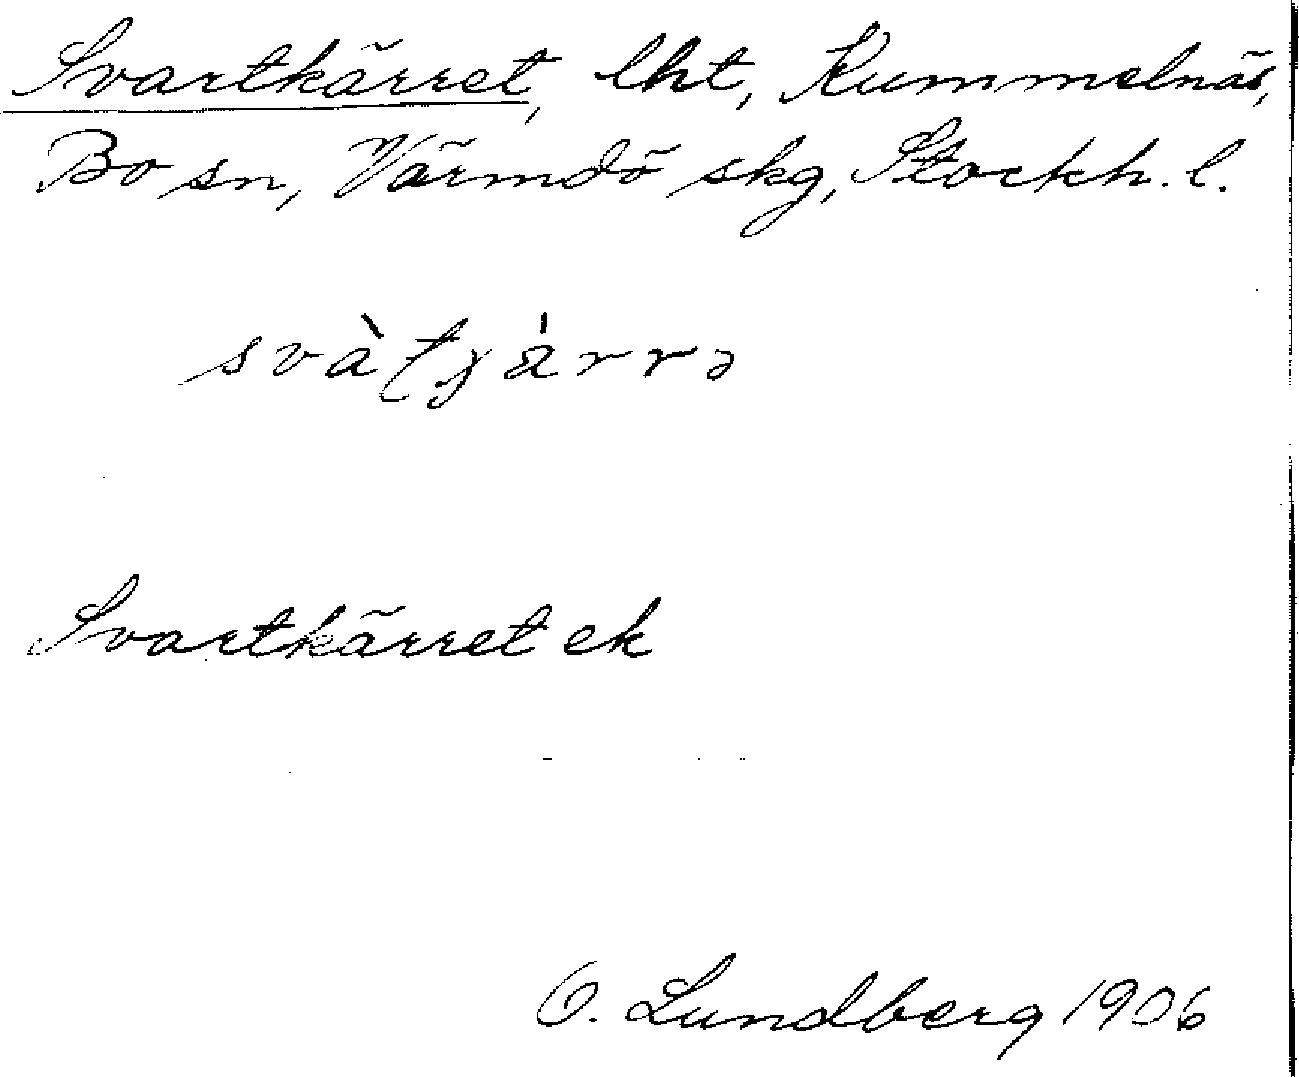 Svartkärret, lht, Kummelnäs,
Bo sn, Värmdö skg, Stockh. l.
Svartkärret ek
O. Lundberg 1906